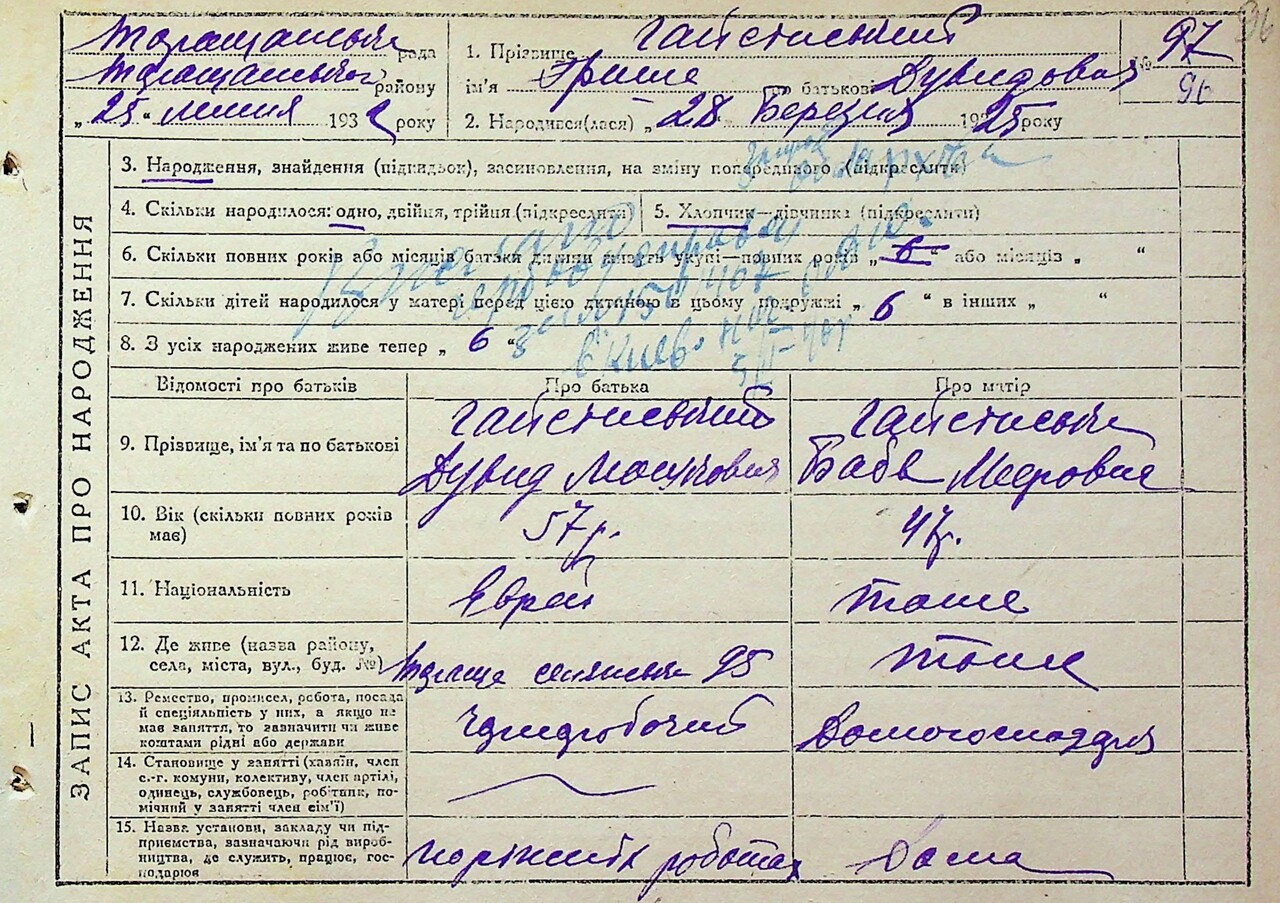 Таращанська рада
Таращанського району
„25“ липня 1932 року
1. Прізвище Гайсинський
ім'я Гриша по батькові Дувидович
2. Народився(лася) „28“ Березня 1925 року
№ 97
96
96
ЗАПИС АКТА ПРО НАРОДЖЕННЯ
3. Народження, знайдення (підкидьок), засиновлення, на зміну попереднього (підкреслити)
4. Скільки народилося: одно, двійня, трійня (підкреслити)
5. Хлопчик—дівчинка (підкреслити)
6. Скільки повних років або місяців батьки дитини живуть укупі—повних років „6“ або місяців „ “
7. Скільки дітей народилося у матері перед цією дитиною в цьому подружжі „6“ в інших „ “
8. З усіх народжених живе тепер „6“
Відомості про батьків
Про батька
Про матір
9. Прізвище, ім'я та по батькові
Гайсинський
Дувид
Гайсинська
Меєровна
10. Вік (скільки повних років
має)
57 р.
47 р.
11. Національність
Єврей
тоже
12. Де живе (назва району,
села, міста, вул., буд. №)
Тараща 95
тоже
13. Ремество, промисел, робота, посада
й спеціяльність у них, а якщо не
має заняття, то зазначити чи живе
коштами рідні або держави
Чорноробочий
Домогосподарка
14. Становище у занятті (хазяїн, член
с.-г. комуни, колективу, член артілі,
одинець, службовець, робітник, по-
мічний у занятті член сім'ї)
15. Назва установи, закладу чи під-
приємства, зазначаючи рід вироб-
ництва, де служить, працює, гос-
подарює
на різних роботах
Дома